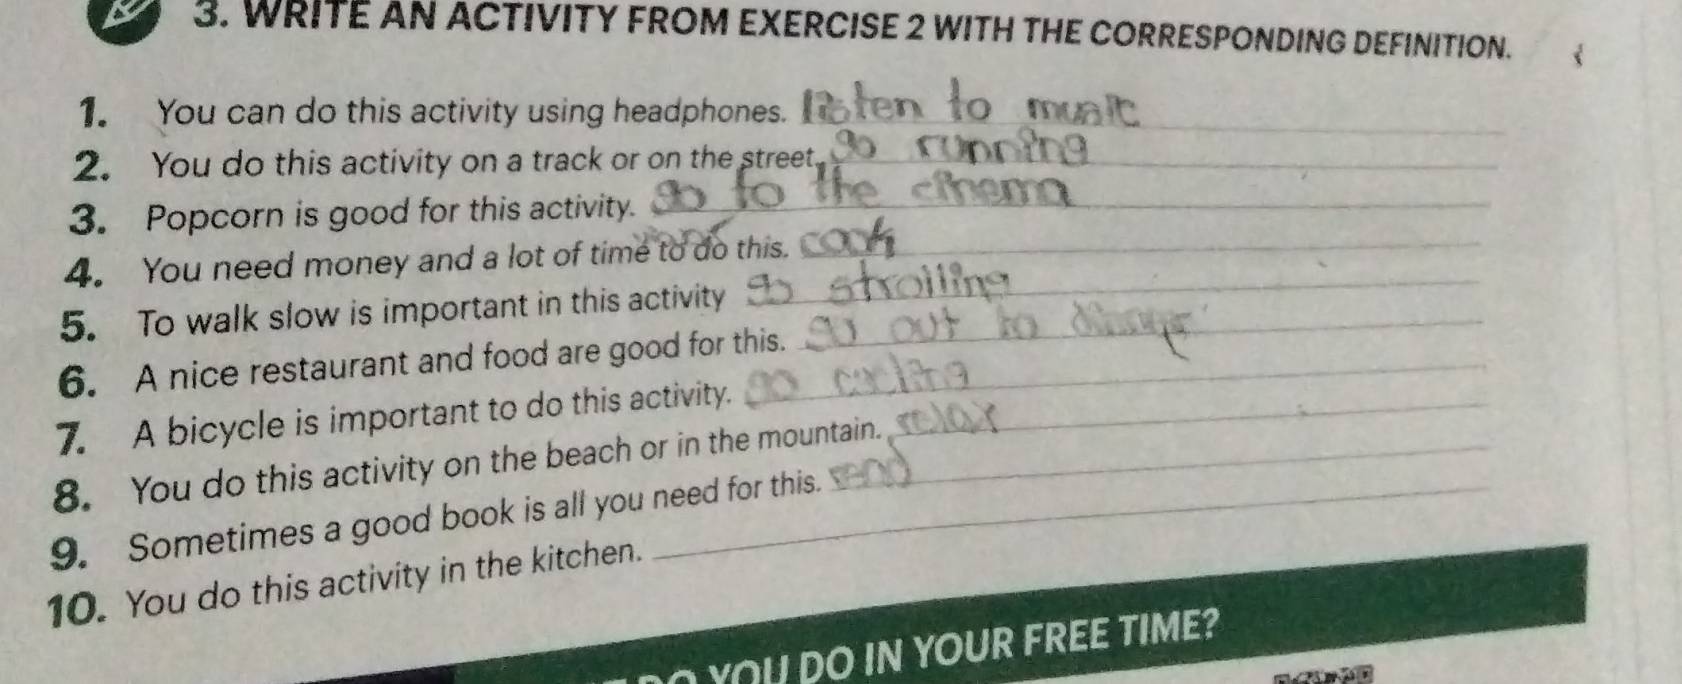 3. WRITE AN ACTIVITY FROM EXERCISE 2 WITH THE CORRESPONDING DEFINITION.
1. You can do this activity using headphones. listen to music
2. You do this activity on a track or on the street. go running
3. Popcorn is good for this activity. go to the cinema
4. You need money and a lot of time to do this. cook
5. To walk slow is important in this activity go strolling
6. A nice restaurant and food are good for this. go out to
7. A bicycle is important to do this activity. go cycling
8. You do this activity on the beach or in the mountain. relax
9. Sometimes a good book is all you need for this. read
10. You do this activity in the kitchen.
DO YOU DO IN YOUR FREE TIME?